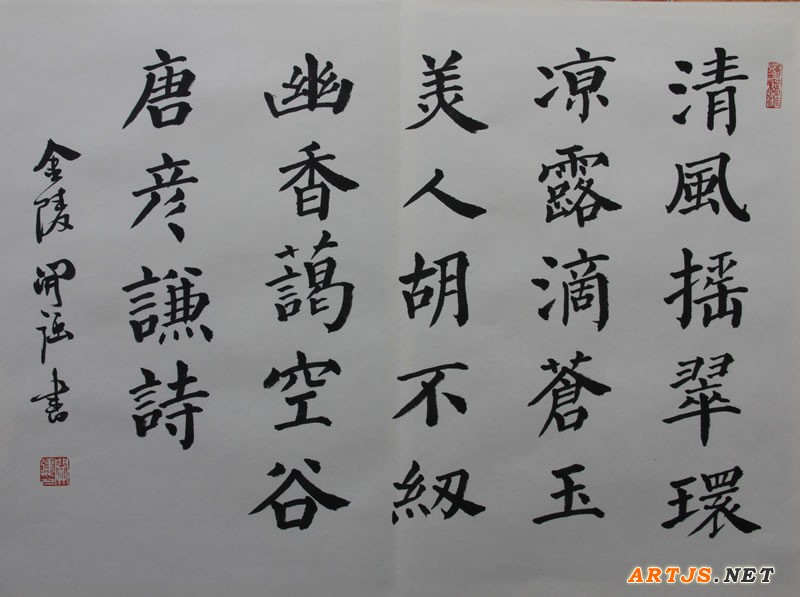 清風摇翠環
凉露滴蒼玉
美人胡不紉
幽香藹空谷
唐彦謙詩
金陵聞謡書
ARTJS.NET